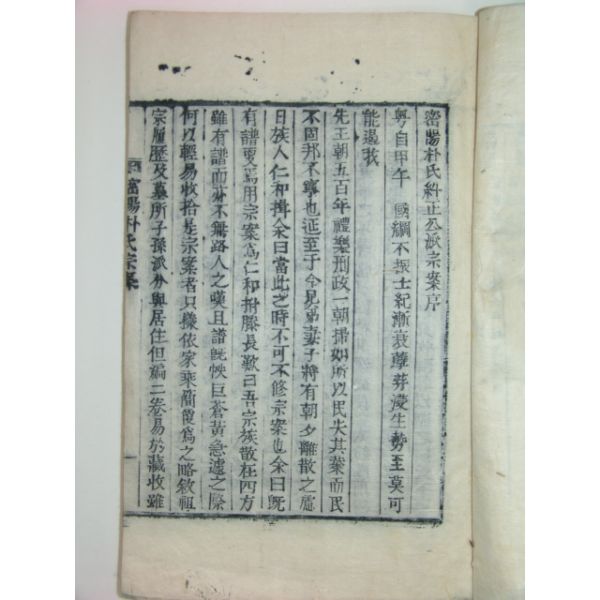 密陽朴氏糾正公派宗案序
粤自甲午 國綱不振士紀漸衰孽芽蔓生勢至莫可
能遏哉
先王朝五百年禮樂刑政一朝掃如所以民失其業而民
不固邦不寧也迨至于今見弟妻子將有朝夕離散之慮
日族人仁和揖余曰當此之時不可不修宗案也余曰旣
有譜更爲用宗案爲仁和拊膝長歎曰吾宗族散在四方
雖有譜而亦不無路人之嘆且譜旣帙巨蒼黃急遽之際
何以輕易收拾是宗案者只據依家乘簡覆爲之略敘祖
宗履歷及墓所子孫派分與居住但編二卷易於藏收雖
密陽朴氏宗案